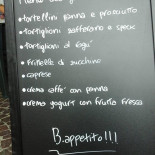 • tortellini panna e prosciutto
• tortiglioni zafferano e speck
• tortiglioni al ragu'
• frittelle di zucchine
• caprese
• crema caffe' con panna
• crema yogurt con frutta fresca
B.appetito!!!